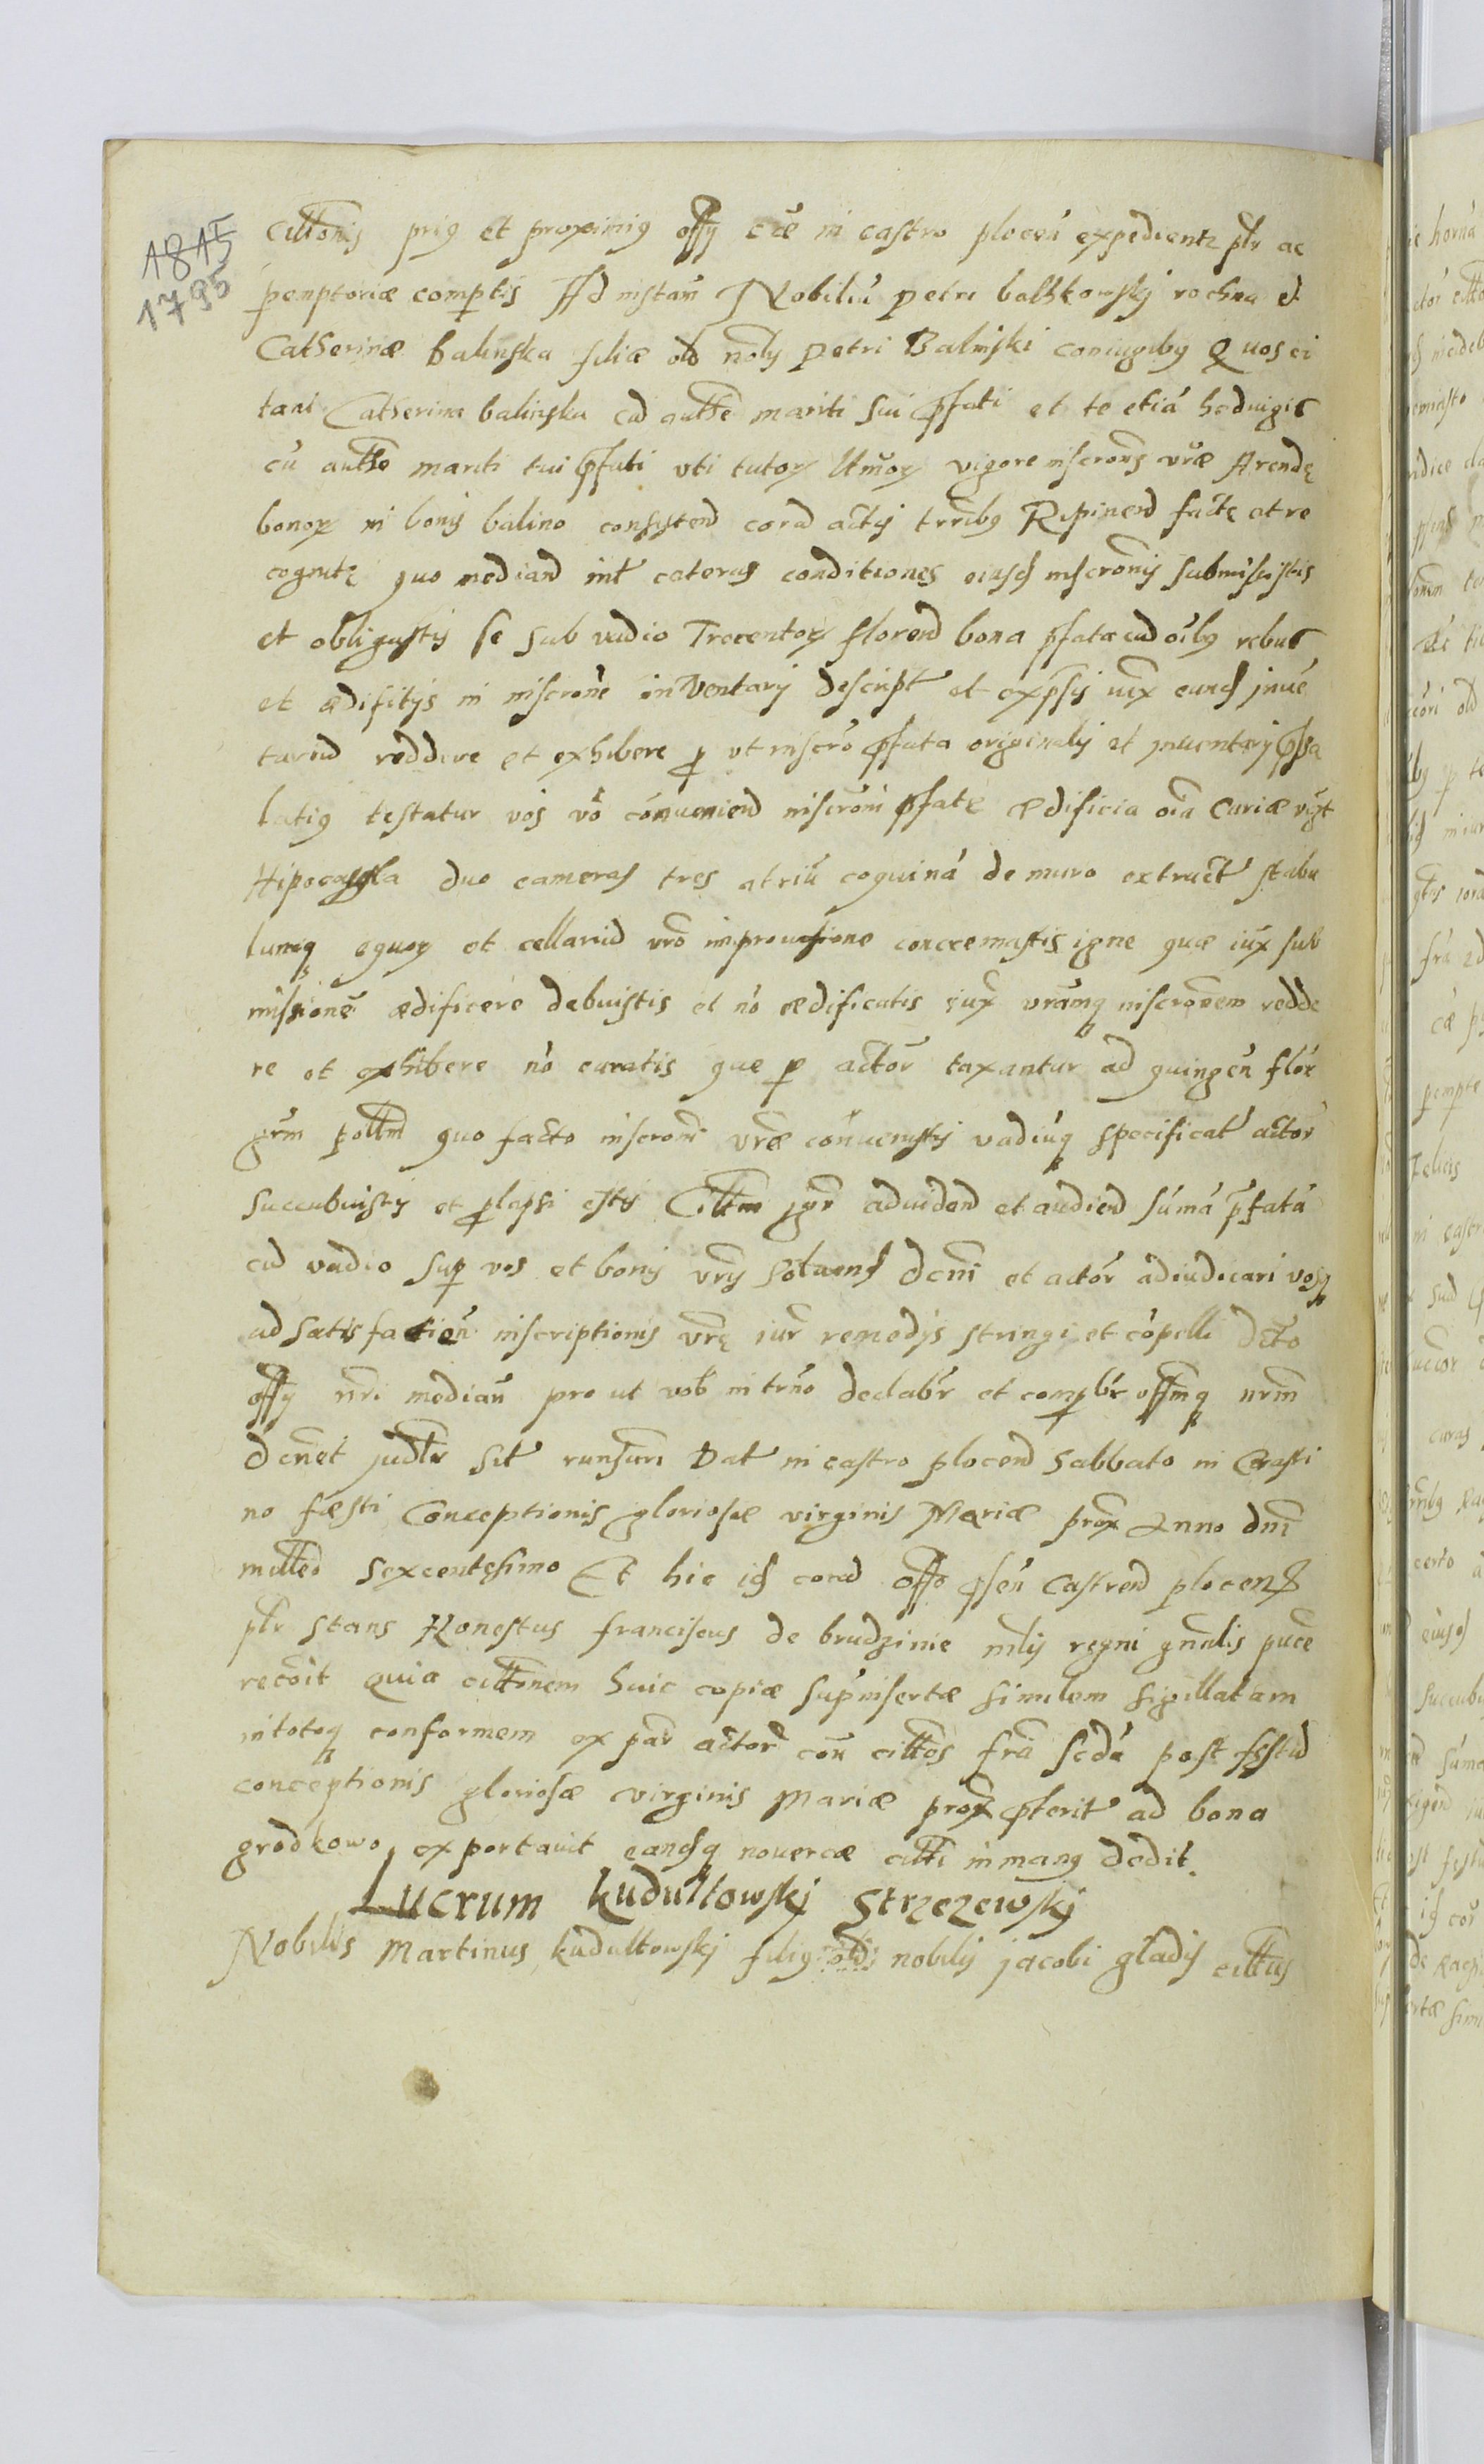 1815
1795
cittonis prig et proximig offy cæ in castro plocen expedient ptr ac
pemptoriæ comptis Ad instan Nobiliu petri balskowskj rochna et
Catherinæ balinska filiæ olb nolis petri Balinski coniugibg Quos ci
tani Catherina balinska cu authe mariti sui pfati et te etia heduigis
cu authe mariti tui pfati uti tutor vigore inscrons vræ Arendę
bonor in bonis balino consisten cora actis trribg Ripinen factę et re
cognitę quo median int cæteras conditiones eiusd inscronis submisistis
et obligastis se sub vadio Trecentor floren bona pfata cu oibg rebus
et ædifitijs in inscrone inVentarij descript et expssis iux eund jnue
tariu reddere et exhibere p ut inscro pfata originalis et jnuentarij
latig testatur vos vo conuenien inscroni pfatę ædificia oia Curiæ vigt
Hipocausta duo cameras tres atriu coquina de muro extruct stabu
lumq equor et cellariu vro improuisione concremastis igne quæ iux sub
missione ædificere debuistis et no ædificatis iux vramq inscronem redde
re et exhibere no curatis quæ p actor taxantur ad quingen flor
grm pollm quo facto inscroni vræ conuenistis vadiuq specificat actor
succubuistis et plapsi estis Cittm jgr aduiden et audien suma pfata
cu vadio sup vos et bonis vris soluend dcni et actor adiudicari vosq
ad satisfaction inscriptionis vrę iur remedijs stringi et copelli dcto
offy nri median pro ut vob in trno declabr et compbr offmq nrm
dcnet judtr sit runsuri Dat in castro plocen Sabbato in Crasti
no fæsti Conceptionis gloriosæ virginis Mariæ prox Anno dni
milleo sexcentesimo Et hic id cora offo psen Castren plocens
ptr stans Honestus franciscus de brudzinie mlis regni gnalis puce
recoit Quia cittonem huic copiæ supinsertæ similem sigillatam
intotoq conformem ex par actor con cittos fria scda post fęstu
conceptionis gloriosæ virginis Mariæ prox pterit ad bona
grodkowo exportauit eandq nouercæ citti in mang dedit
Lucrum kudultowskj Strzezewskj
Nobilis Martinus kudultowskj filig olb nobilis jacobi gladis cittus